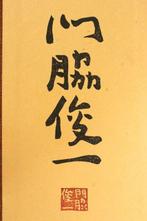 门脇俊一
門脇
俊一